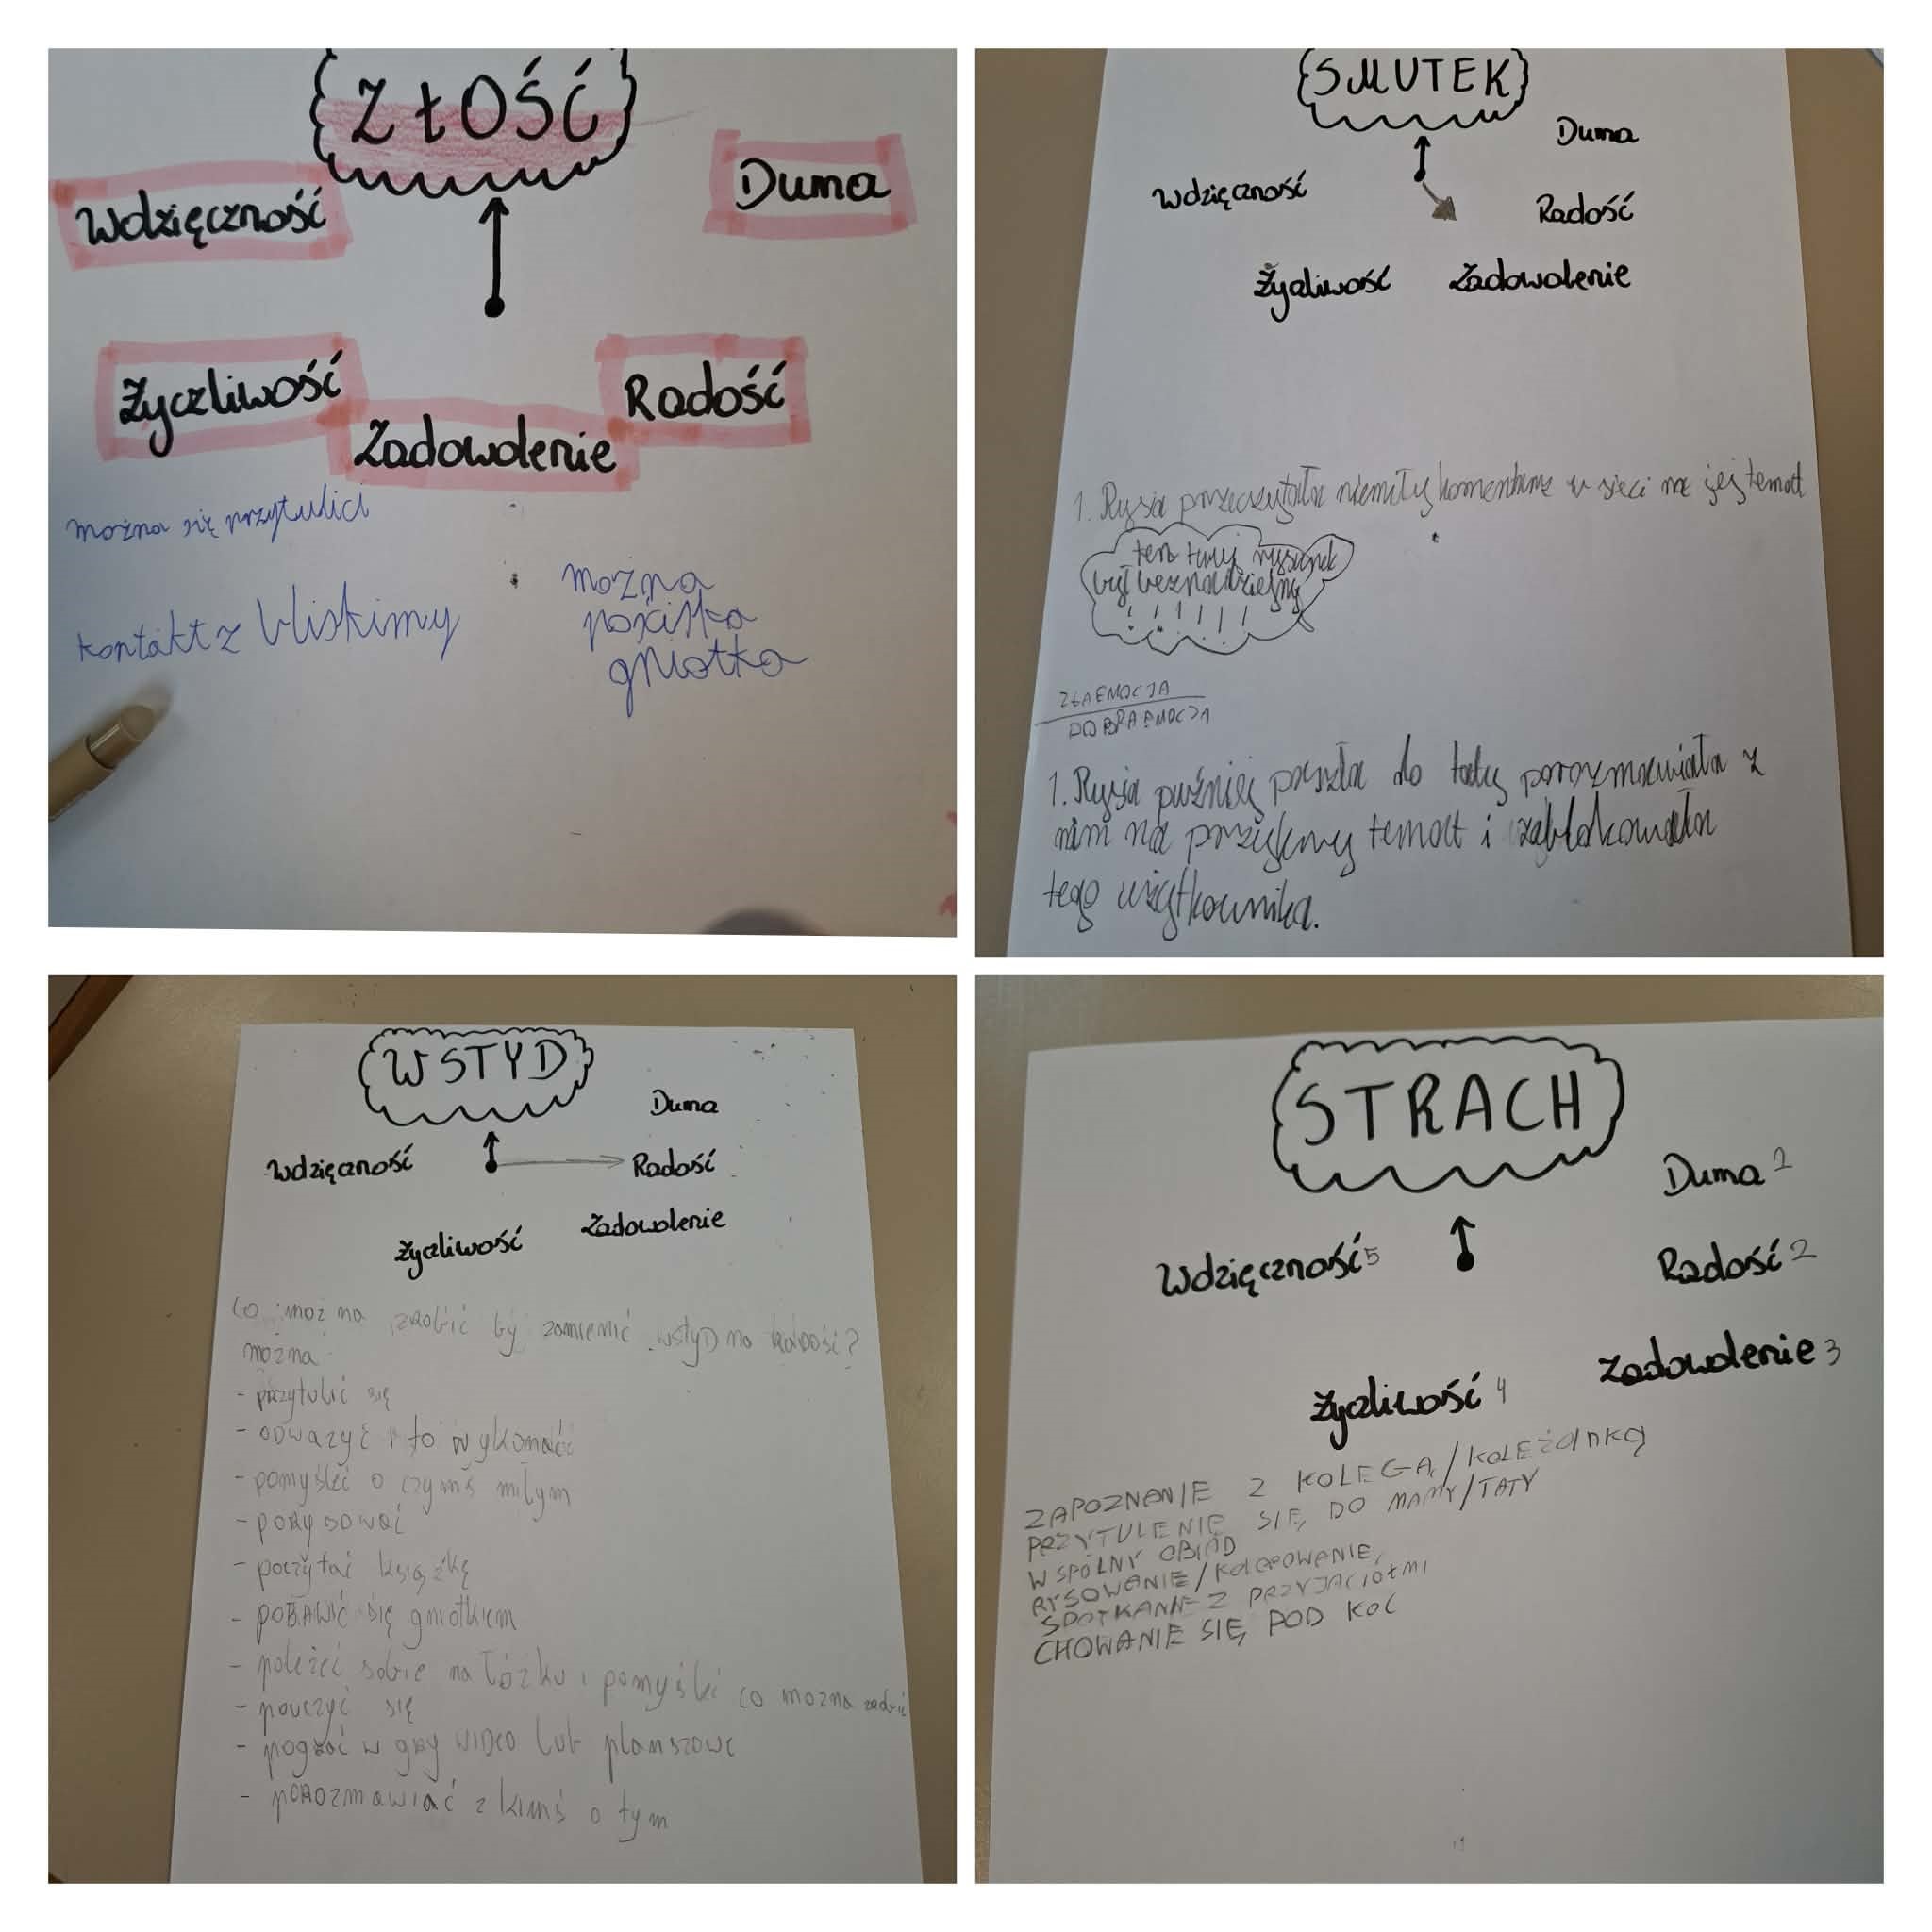 ZŁOŚĆ
Wdzięczność
Duma
Życzliwość
Radość
Zadowolenie
można się przytulići
kontakt z bliskimy
można
gniotka
SMUTEK
Duma
Wdzięczność
Radość
Życzliwość
Zadowolenie
1. Rysia przeczytała niemiły komentarz w sieci na jej temat
ten twuj rysunek
był beznadziejny
! ! ! ! ! !
ZŁA EMOCJA
DOBRA EMOCJA
1. Rysia puźniej poszła do taty porozmawiała z
nim na przykry temat i zablokowała
tego użytkownika.
WSTYD
Duma
Wdzięczność
Radość
Zadowolenie
Życzliwość
Co można zrobić by zamienić wstyD na RaDość?
można
- pRzytulić się
- ODważyć i to wykonać
- pomyśleć o czymś miłym
- poRysować
- poczytać książkę
- POBAWIĆ się gniotkiem
- poleżeć sobie na łóżku i pomyśleć co można zrobić
- pouczyć się
- pograć w gry wiDeo lub planszowe
- poRozmawiać z kimś o tym
STRACH
Duma 2
Wdzięczność 5
Radość 2
Zadowolenie 3
Życzliwość 4
ZAPOZNANIE Z KOLEGĄ/KOLEŻANKĄ
PRZYTULENIE SIĘ DO MAMY/TATY
WSPÓLNY OBIAD
RYSOWANIE/KOLOROWANIE,
SPOTKANIE Z PRZYJACIÓŁMI
CHOWANIE SIĘ POD KOC